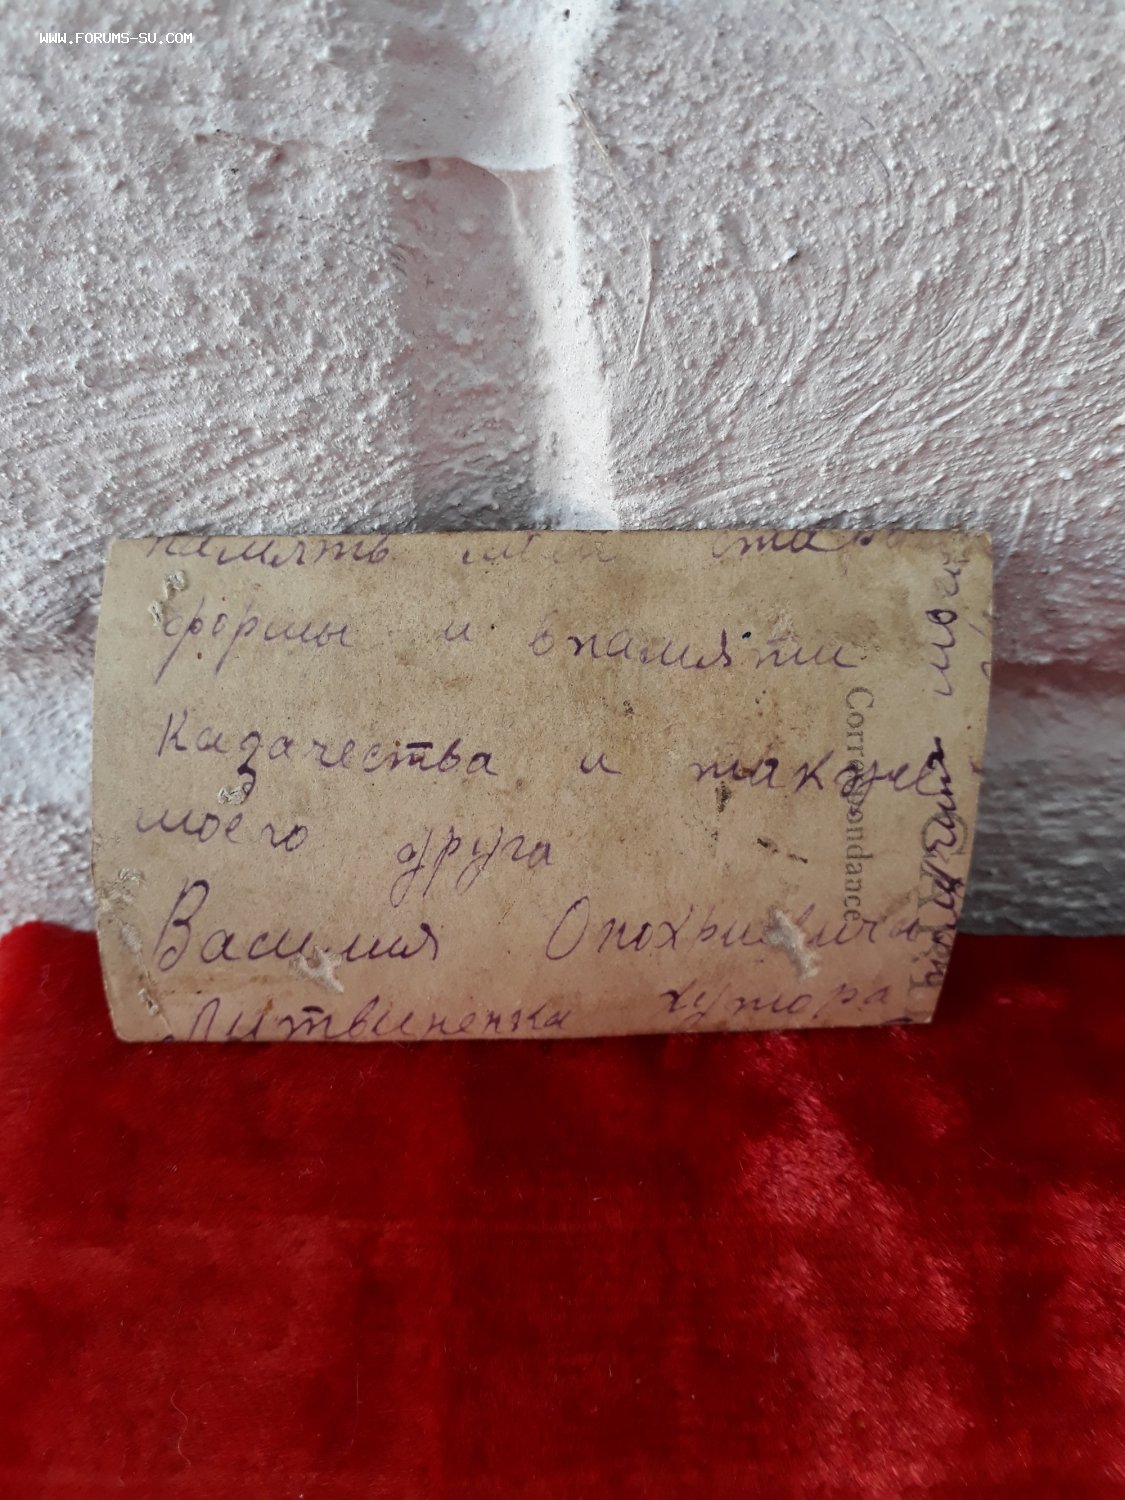 WWW.FORUMS-SU.COM
память моей
формы и впамяти
казачества и также
моего друга
Василия Опохриевича
Литвиненка хутора
Correspondance